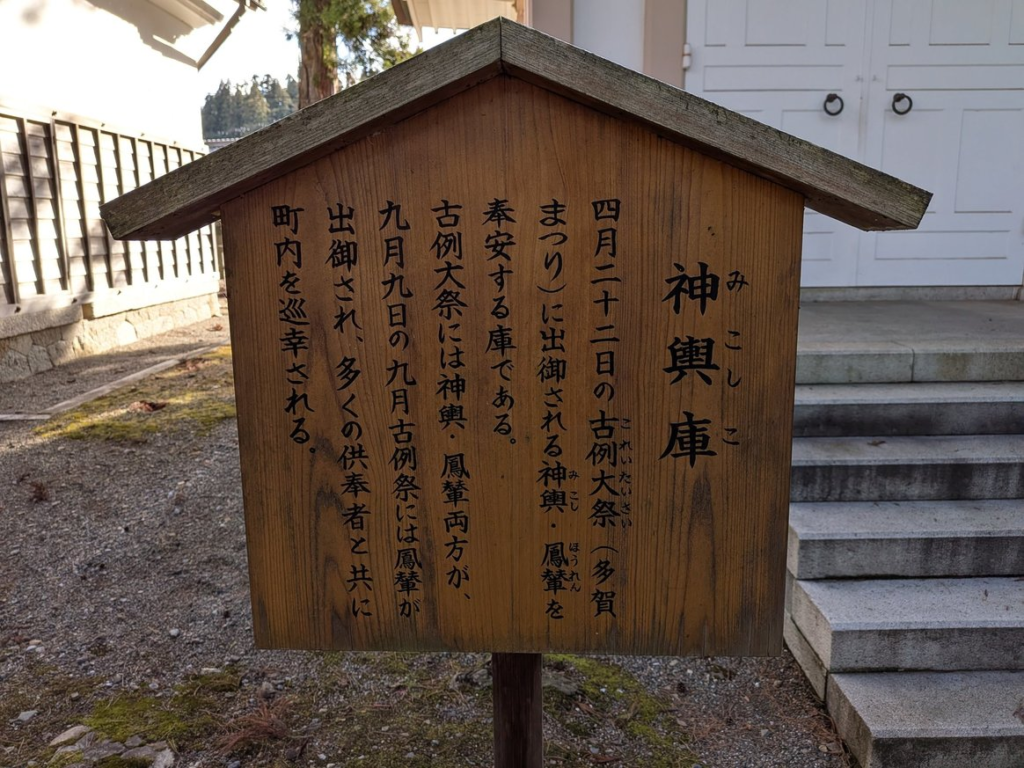 神輿庫
みこしこ
四月二十二日の古例大祭（多賀
これいたいさい
まつり）に出御される神輿・鳳輦を
みこし
ほうれん
奉安する庫である。
古例大祭には神輿・鳳輦両方が、
九月九日の九月古例祭には鳳輦が
出御され、多くの供奉者と共に
町内を巡幸される。